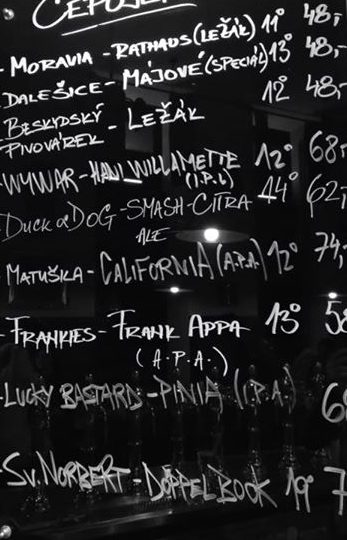 ČEPUJEME
- MORAVIA - RATHAUS (LEŽÁK) 11° 48,-
DALEŠICE - MÁJOVÉ (SPECIÁL) 13° 48,-
BESKYDSKÝ PIVOVÁREK - LEŽÁK 12° 48,-
- WYWAR - WILLAMETTE 12° 68,-
(I.P.L)
DUCK & DOG - SMASH - CITRA 14° 62,-
ALE
MATUŠKA - CALIFORNIA (A.P.A.) 12° 74,-
- FRANKIES - FRANK APPA 13° 58
(A.P.A.)
- LUCKY BASTARD - PINIA (I.P.A.) 6
- SV. NORBERT - DOPPELBOOK 19° 7